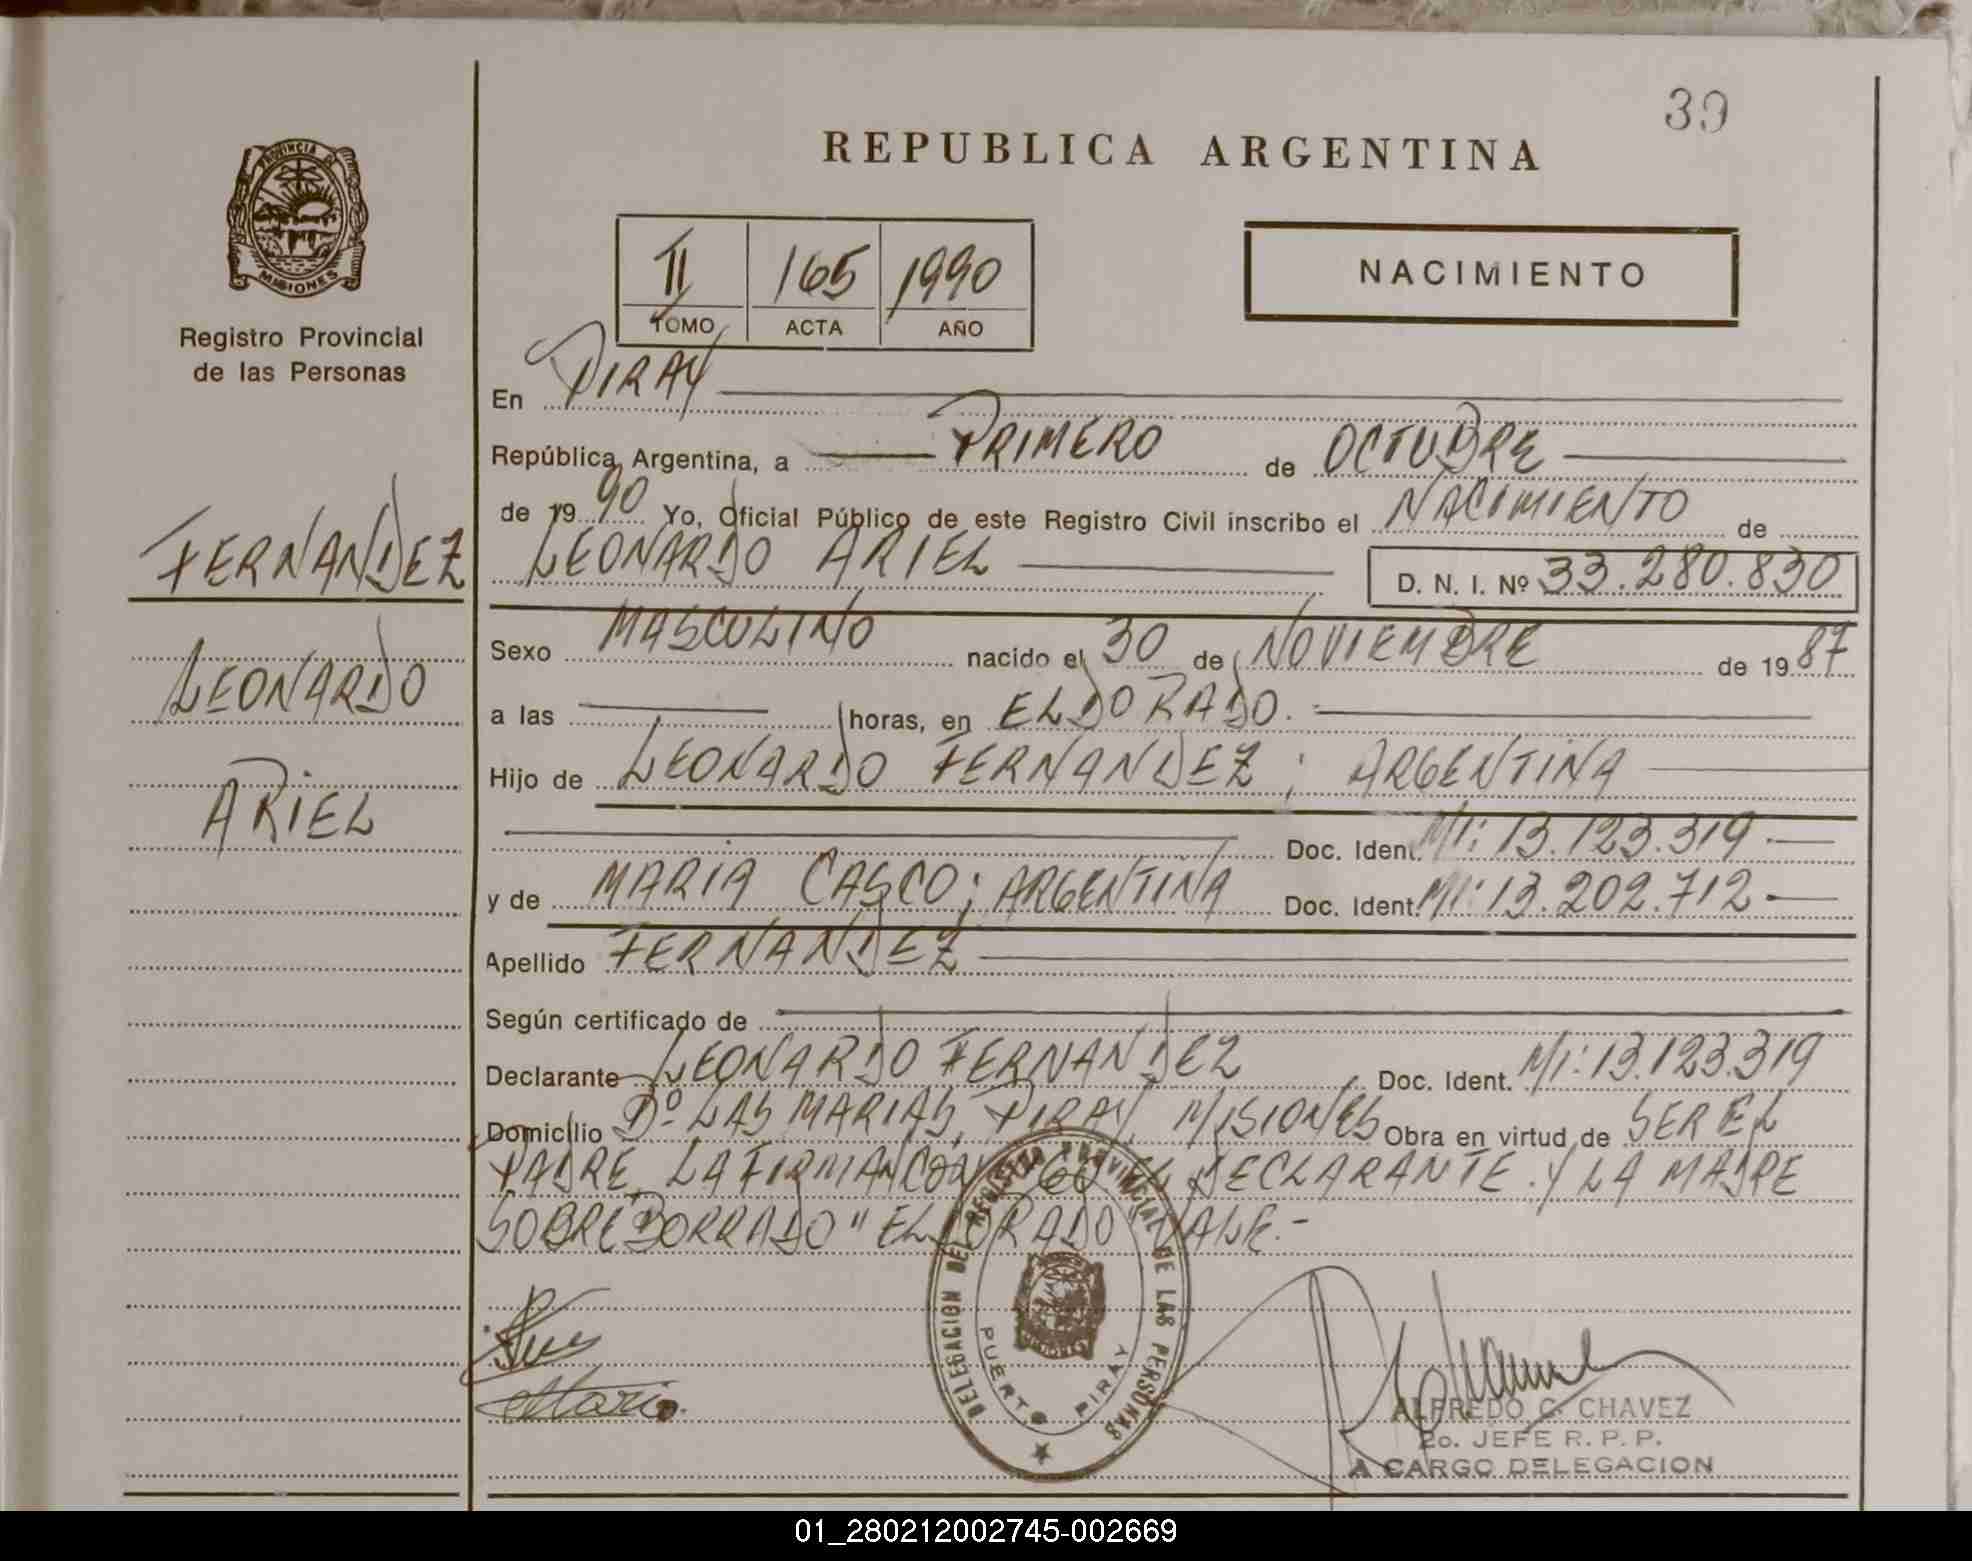 39
REPUBLICA ARGENTINA
PROVINCIA DE
MISIONES
Registro Provincial
de las Personas
II 165 1990
TOMO ACTA AÑO
NACIMIENTO
En PIRAY
República Argentina, a PRIMERO de OCTUBRE
de 1990 Yo, Oficial Público de este Registro Civil inscribo el NACIMIENTO de
LEONARDO ARIEL D. N. I. Nº 33.280.830
FERNANDEZ
LEONARDO
ARIEL
Sexo MASCULINO nacido el 30 de NOVIEMBRE de 1987
a las horas, en ELDORADO.
Hijo de LEONARDO FERNANDEZ; ARGENTINA
Doc. Ident. MI: 13.123.319
y de MARIA CASCO; ARGENTINA Doc. Ident. MI: 13.202.712
Apellido FERNANDEZ
Según certificado de
Declarante LEONARDO FERNANDEZ Doc. Ident. MI: 13.123.319
Domicilio Bº LAS MARIAS, PIRAY, MISIONES Obra en virtud de SER EL
PADRE. LA FIRMAN CON EL DECLARANTE. Y LA MADRE
SOBREBORRADO "ELDORADO" VALE.-
DELEGACION DEL REGISTRO PROVINCIAL DE LAS PERSONAS
PUERTO PIRAY
Maria
ALFREDO C. CHAVEZ
2o. JEFE R. P. P.
A CARGO DELEGACION
01_280212002745-002669